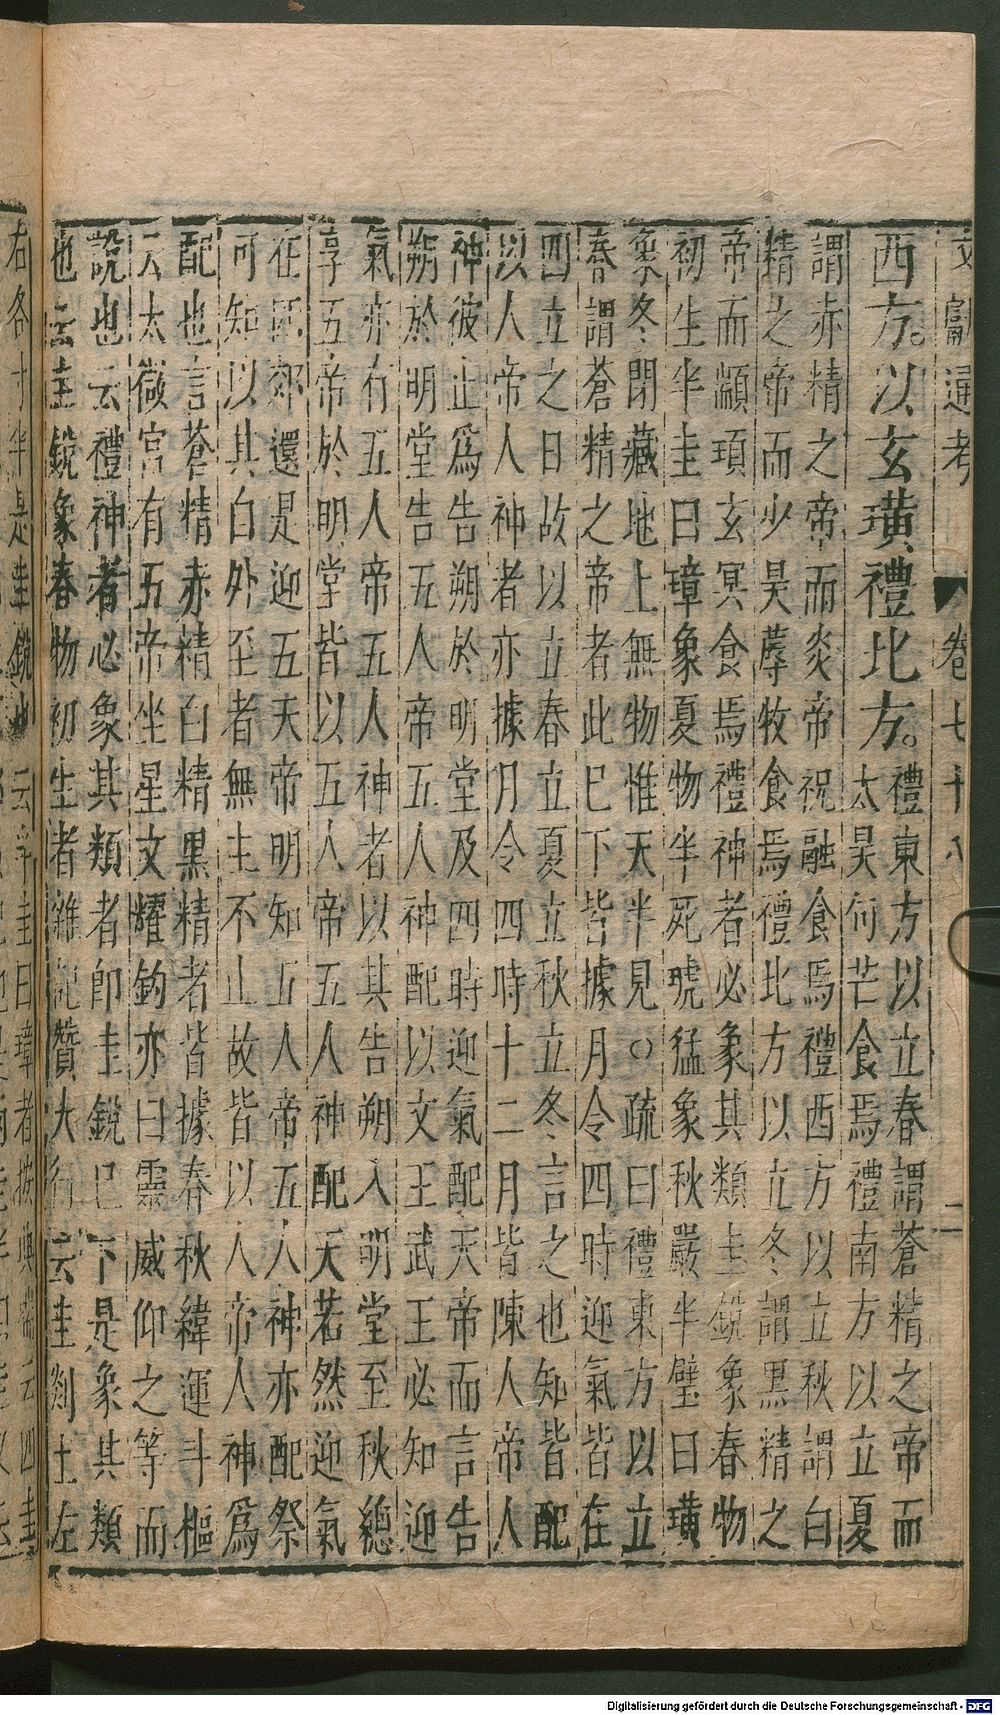 文獻通考 卷七十八 二
西方以玄璜禮北方 禮東方以立春謂蒼精之帝而
太昊句芒食焉禮南方以立夏
謂赤精之帝而炎帝祝融食焉禮西方以立秋謂白
精之帝而少昊蓐收食焉禮北方以立冬謂黑精之
帝而顓頊玄冥食焉禮神者必象其類圭銳象春物
初生半圭曰璋象夏物半死琥猛象秋嚴半璧曰璜
象冬閉藏地上無物惟天半見○疏曰禮東方以立
春謂蒼精之帝者此已下皆據月令四時迎氣皆在
四立之日故以立春立夏立秋立冬言之也知皆配
以人帝人神者亦據月令四時十二月皆陳人帝人
神彼止爲告朔於明堂及四時迎氣配天帝而言告
朔於明堂告五人帝五人神配以文王武王必知迎
氣亦有五人帝五人神者以其告朔入明堂至秋緫
享五帝於明堂皆以五人帝五人神配天若然迎氣
在四郊還是迎五天帝明知五人帝五人神亦配祭
可知以其自外至者無主不止故皆以人帝人神爲
配也言蒼精赤精白精黑精者皆據春秋緯運斗樞
云太微宮有五帝坐星文耀鈎亦曰靈威仰之等而
說也云禮神者必象其類者卽圭銳已下是象其類
也云圭銳象春物初生者雜記贊大行云圭剡上左
右各寸半是圭銳也云半圭曰璋者按典瑞云四圭
Digitalisierung gefördert durch die Deutsche Forschungsgemeinschaft - DFG